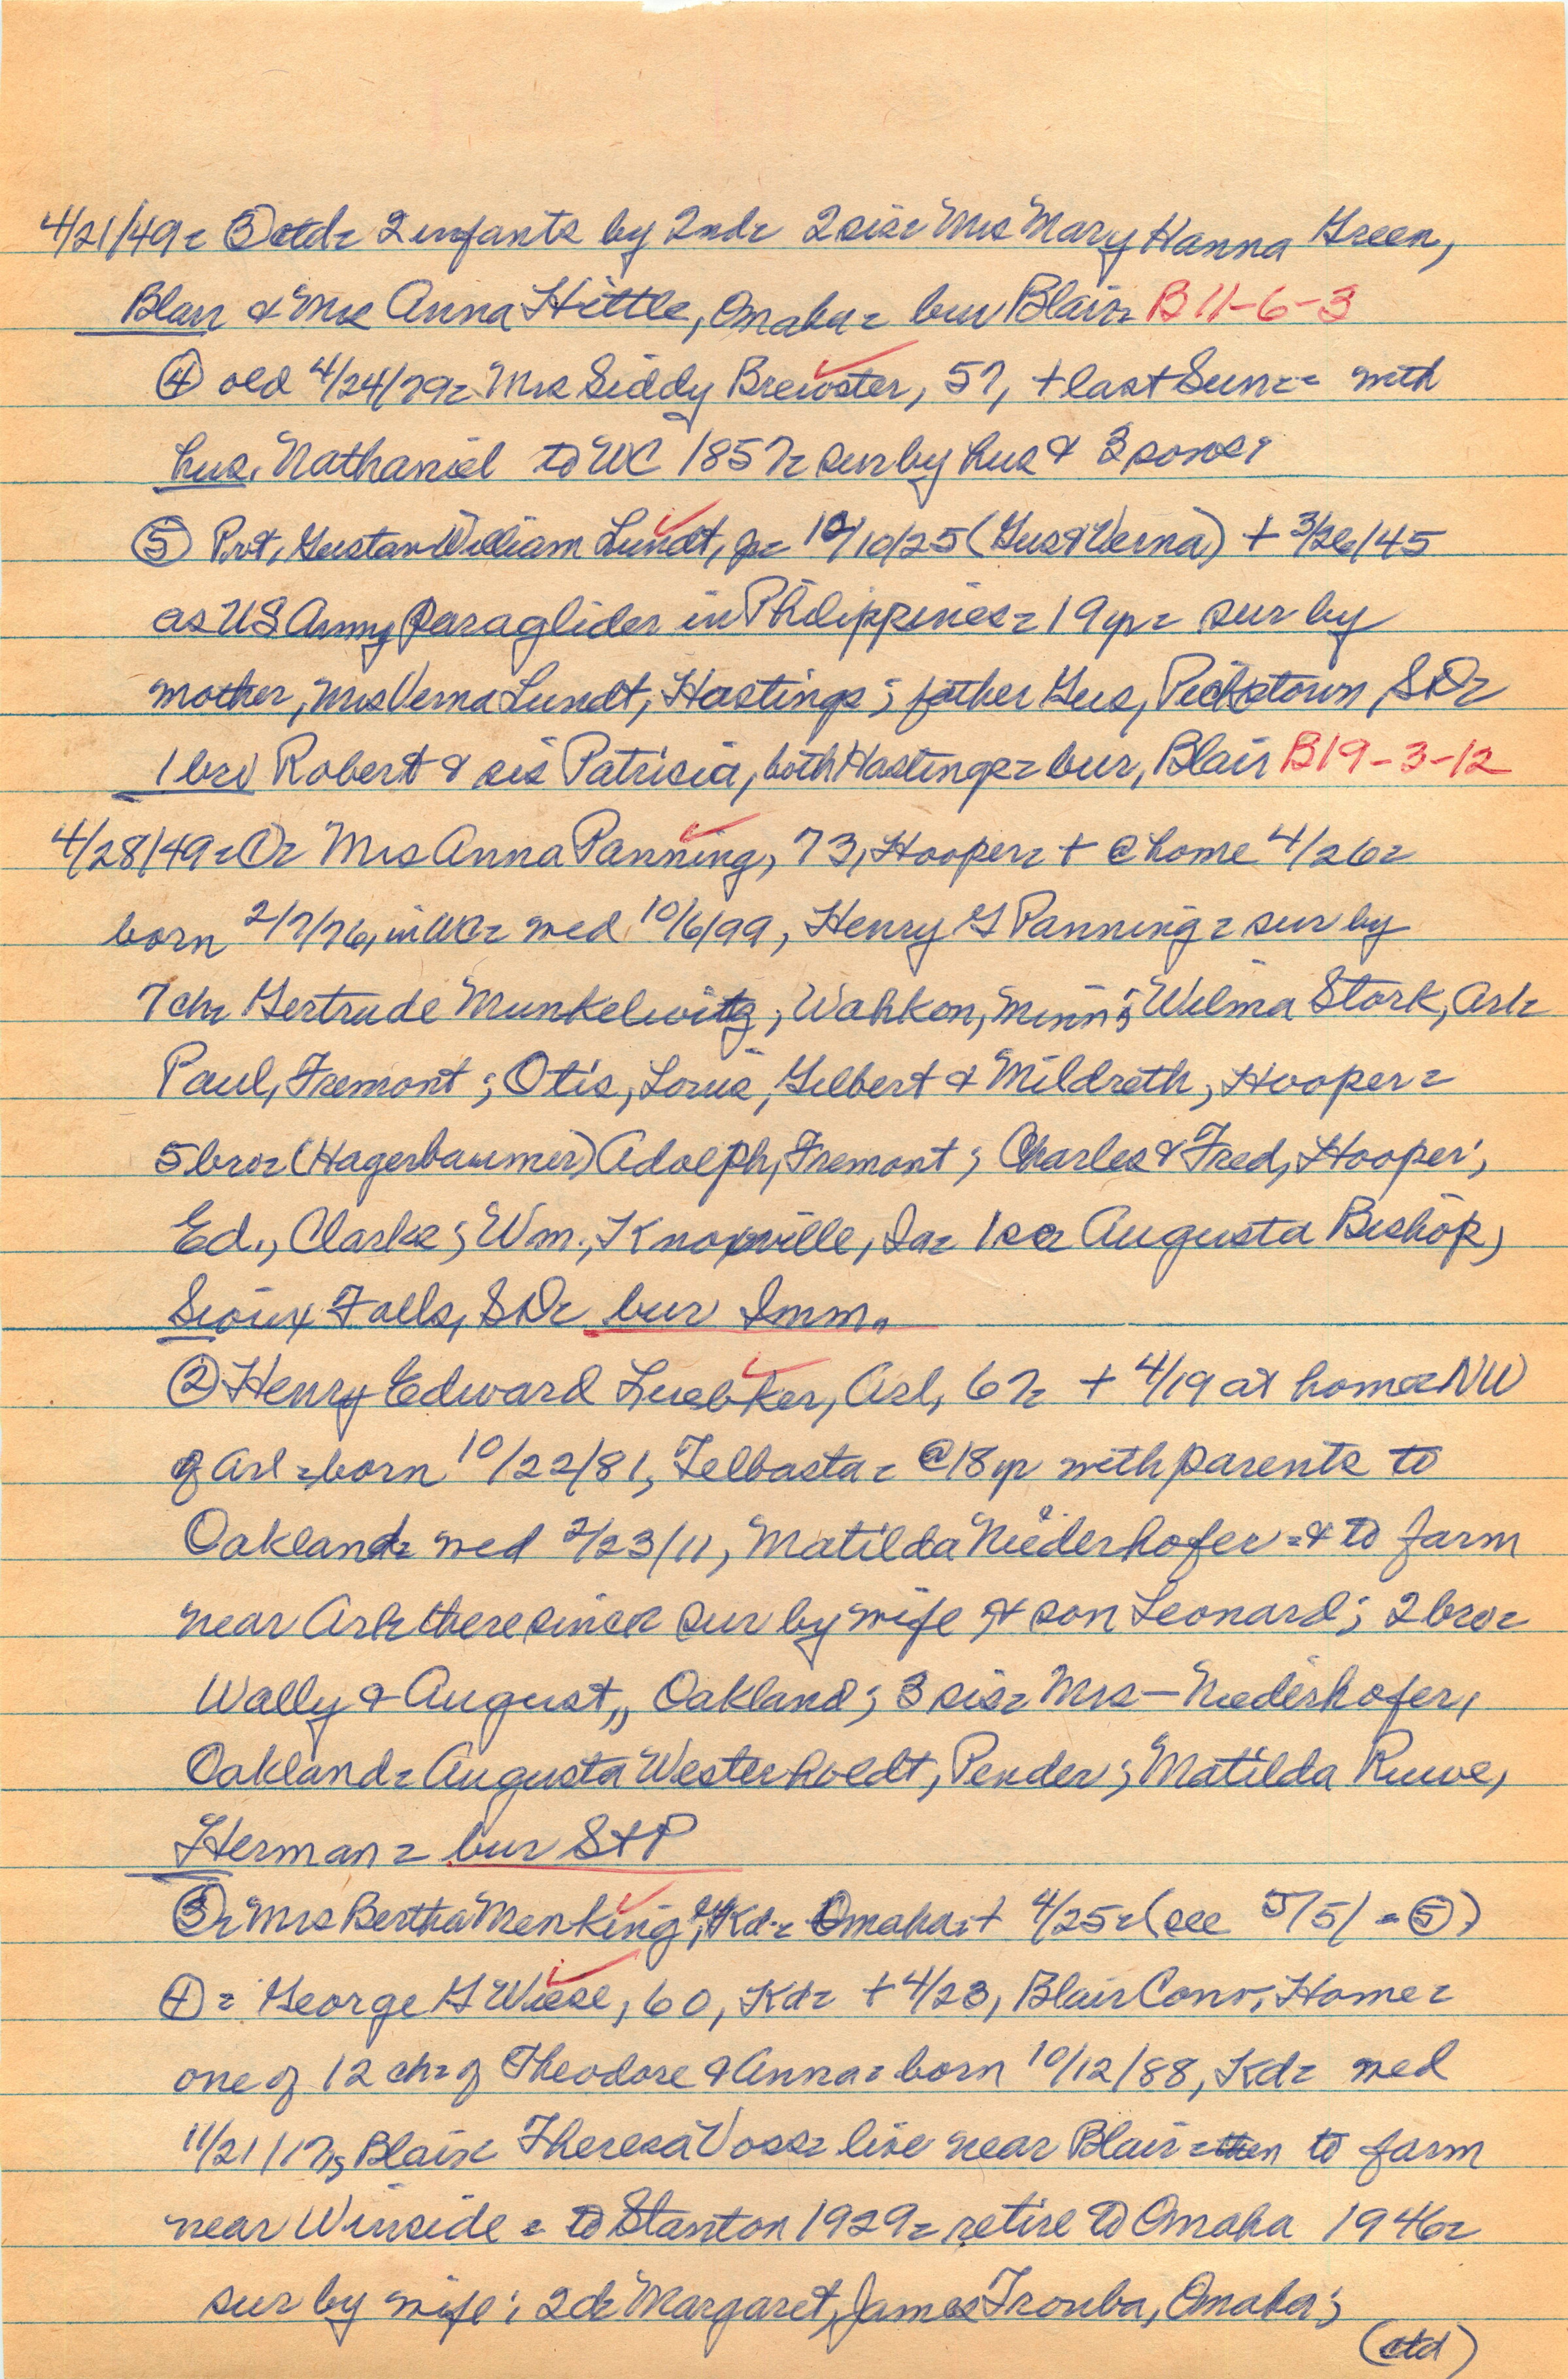 4/21/49= ③ ctd= 2 infants by 2nd= 2 sis= Mrs Mary Hanna Green,
Blair & Mrs Anna Hittle, Omaha= bur Blair= B11-6-3
④ old 4/24/79= Mrs Siddy Brewster, 57, + last Sun== with
hus. Nathaniel to WC 1857= sur by hus & 3 sons.
⑤ Pvt. Gustav William Lundt, jr= 10/10/25 (Gus & Verna) + 3/26/45
as US Army paraglider in Philippines= 19 yr= sur by
mother, Mrs Verna Lundt, Hastings; father Gus, Pickstown, SD=
1 bro Robert & sis Patricia, both Hastings= bur, Blair B19-3-12
4/28/49= ①= Mrs Anna Panning, 73, Hooper= + @ home 4/26=
born 2/7/76, in WC= wed 10/6/99, Henry G Panning= sur by
7 ch= Gertrude Munkelwitz, Wahkon, Minn; Wilma Stork, Arl=
Paul, Fremont; Otis, Lorus, Gilbert & Mildreth, Hooper=
5 bro= (Hagerbaumer) Adolph, Fremont; Charles & Fred, Hooper;
Ed., Clarks; Wm., Knoxville, Ia= 1 sis= Augusta Bishop,
Sioux Falls, SD= bur Imm.
② Henry Edward Luebker, Arl, 67= + 4/19 at home= NW
of Arl= born 10/22/81, Telbasta= @ 18 yr with parents to
Oakland= wed 2/23/11, Matilda Niederhofer= & to farm
near Arl= there since= sur by wife & son Leonard; 2 bro=
Wally & August,, Oakland; 3 sis= Mrs — Niederhofer,
Oakland= Augusta Westerholdt, Pender; Matilda Ruwe,
Herman= bur St P
③= Mrs Bertha Menking, Kd.= Omaha= + 4/25= (see 5/5/ = ⑤)
④= George G Wiese, 60, Kd= + 4/23, Blair Conv. Home=
one of 12 ch= of Theodore & Anna= born 10/12/88, Kd= wed
11/21/17, Blair= Theresa Voss= live near Blair= then to farm
near Winside= to Stanton 1929= retire to Omaha 1946=
sur by wife; 2 d= Margaret, James Trouba, Omaha;
(ctd)